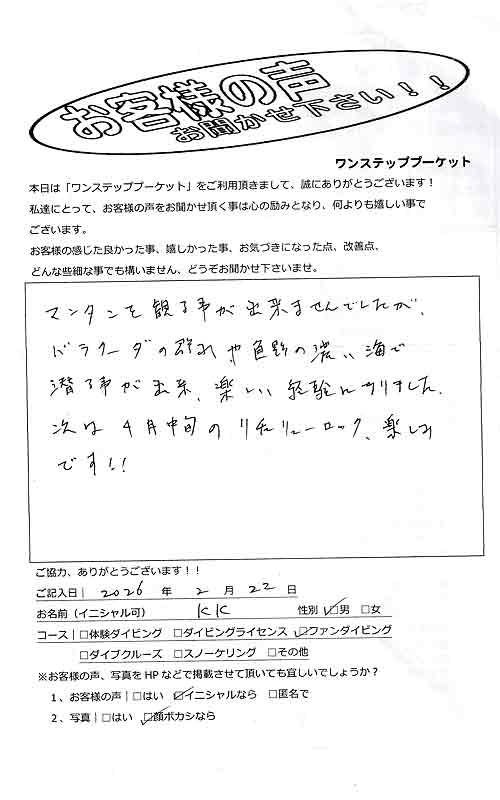 お客様の声
お聞かせ下さい！！
ワンステッププーケット
本日は「ワンステッププーケット」をご利用頂きまして、誠にありがとうございます！
私達にとって、お客様の声をお聞かせ頂く事は心の励みとなり、何よりも嬉しい事で
ございます。
お客様の感じた良かった事、嬉しかった事、お気づきになった点、改善点、
どんな些細な事でも構いません、どうぞお聞かせ下さいませ。
マンタンを観る事が出来ませんでしたが、
バラクーダの群れや魚影の濃い海で
潜る事が出来、楽しい経験になりました。
次は4月中旬のリチェリューロック、楽しみ
です!!
ご協力、ありがとうございます！！
ご記入日｜2026年2月22日
お名前（イニシャル可） KK 性別｜☑男 □女
コース｜□体験ダイビング □ダイビングライセンス ☑ファンダイビング
□ダイブクルーズ □スノーケリング □その他
※お客様の声、写真をHPなどで掲載させて頂いても宜しいでしょうか？
1、お客様の声｜□はい ☑イニシャルなら □匿名で
2、写真｜□はい ☑顔ボカシなら